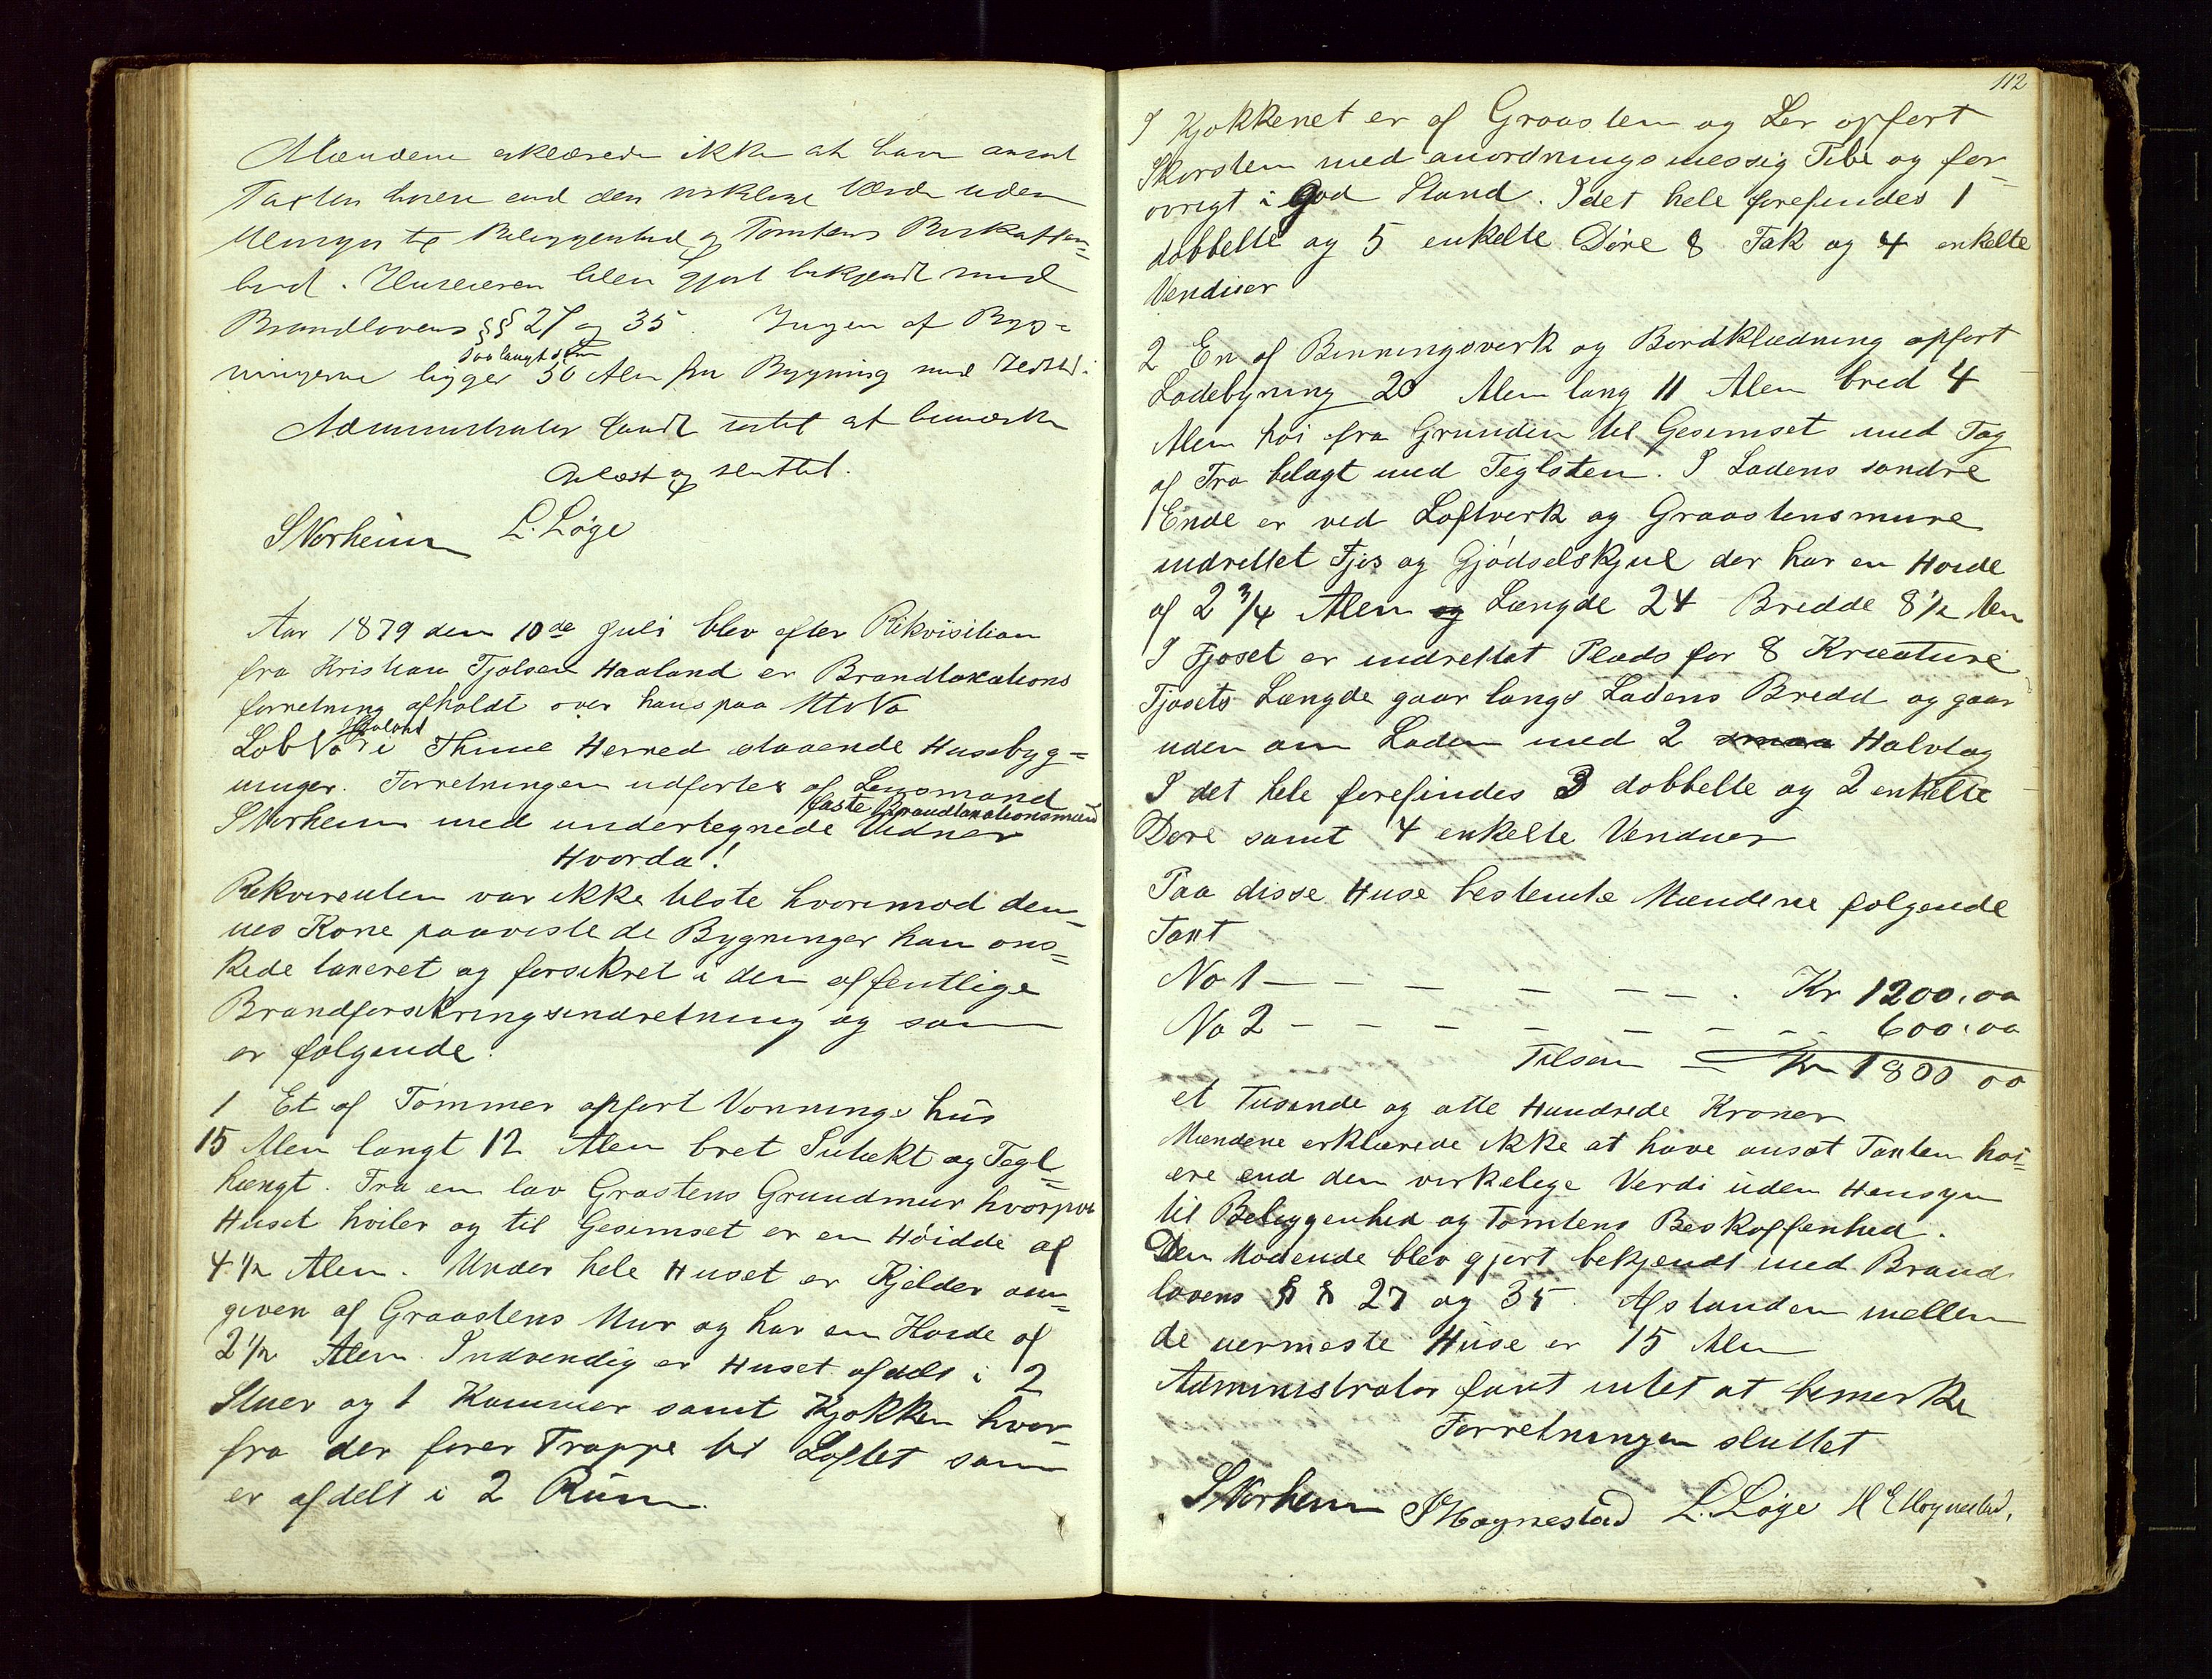 Mændene erklærede ikke at have ansat
Taxten høiere end den virkelige Værdi uden
Hensyn til Beliggenhed og Tomtens Beskaffen=
hed. Huseieren blev gjort bekjendt med
Brandlovens §§ 27 og 35. Ingen af Byg=
ningerne ligger saalangt som 50 Alen fra Bygning med Ildsted.
Administrator fandt intet at bemærke
Oplæst og sluttet.
SNorheim L. Løge
Aar 1879 den 10de Juli blev efter Rikvisition
fra Kristian Tjolsen Haaland er Brandtaxations
forretning afholdt over hans paa Mto No
Lob No Haaland i Thime Herred staaende Husebyg=
ninger. Forretningen udførtes af Lensmand
SNorheim med undertegnede faste Brandtaxationsmænd Vidner
Hvorda!
Rekvirenten var ikke tilste hvorimod den=
nes Kone paaviste de Bygninger han øns=
kede taxeret og forsikret i den offentlige
Brandforsikringsindretning og som
er følgende:
1 Et af Tømmer opført Vonningshus
15 Alen langt 12 Alen bret Sutækt og Tegl=
hængt. Fra en lav Grastens Grundmur hvorpaa
Huset hviler og til Gesimset er en Høidde af
4 1/2 Alen. Under hele Huset er Kjelder om=
given af Graastens Mur og har en Høide af
2 1/2 Alen. Indvendig er Huset afdelt i 2
Stuer og 1 Kammer samt Kjøkken hvor=
fra der fører Trappe til Loftet som
er afdelt i 2 Rum.
112
I Kjøkkenet er af Graasten og Ler opført
Skorsten med anordningsmessig Pibe og for=
øvrigt i god Stand. I det hele forefindes 1
dobbelte og 5 enkelte Døre 8 Fak og 4 enkelte
Venduer
2 En af Binningsverk og Bordklædning opført
Ladebyning 20 Alen lang 11 Alen bred 4
Alen høi fra Grunden til Gesimset med Tag
af Træ belagt med Teglsten. I Ladens søndre
Ende er ved Loftverk og Graastensmure
indrettet Fjøs og Gjødselskjul der har en Høide
af 2 3/4 Alen og Længde 24 Bredde 8 1/2 Alen
I Fjøset er indrettet Plads for 8 Kreature
Fjøsets Længde gaar langs Ladens Bredd og gaar
uden om Laden med 2 smaa Halvtag
I det hele forefindes 3 dobbelte og 2 enkelte
Døre samt 4 enkelte Venduer
Paa disse Huse bestemte Mændene følgende
Taxt
No 1 — — — — — — . Kr 1200.00
No 2 — — — — — — — 600.00
Tilsam — Kr 1800 00
et Tusende og otte Hundrede Kroner
Mændene erklærede ikke at have ansat Taxten høi=
ere end den virkelige Verdi uden Hensyn
til Beliggenhed og Tomtens Beskaffenhed.
Den Mødende blev gjort bekjendt med Brand
lovens § § 27 og 35. Afstanden mellem
de nermeste Huse er 15 Alen
Administrator fant intet at bemerke
Forretningen sluttet
SNorheim SHognestad L. Løge H E Hognestad.